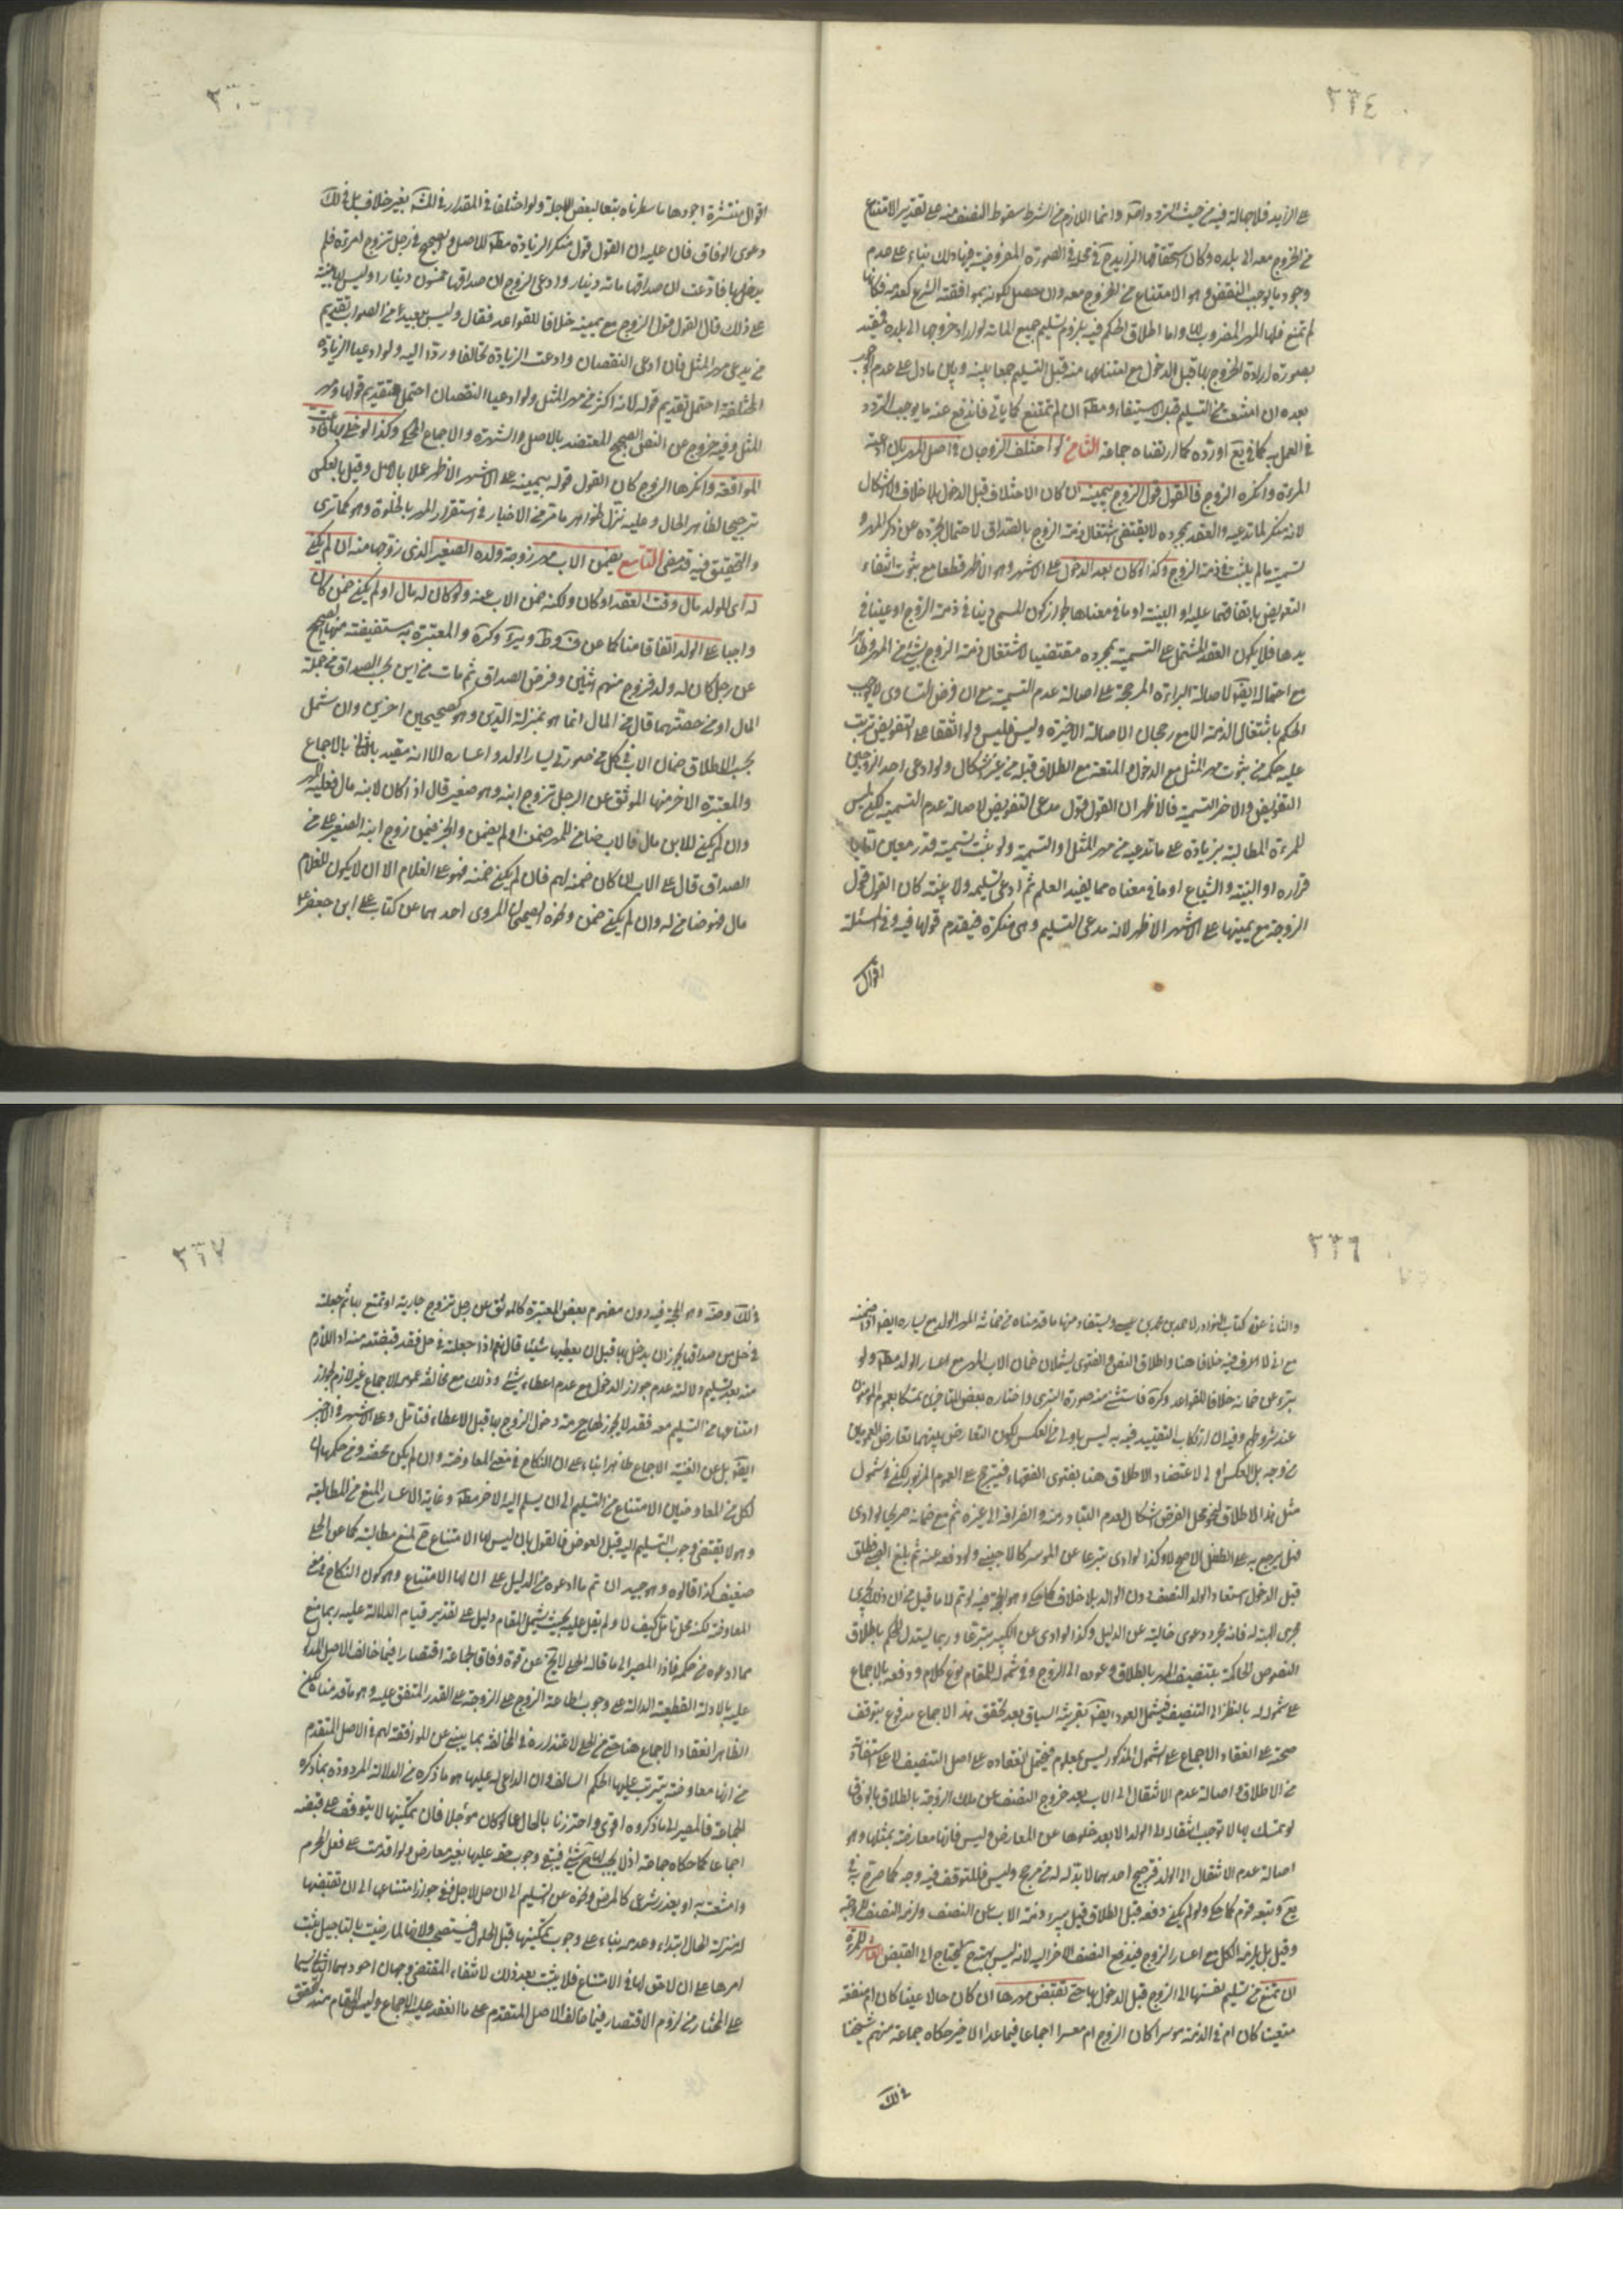 ٣٣٤
على الزايد فلا جهالة فيه من حيث التردد وانما اللازم من الشرط سقوط النصف منه على تقدير الامتناع
من الخروج معه الى بلده وكان استحقاقها الزايد في محله في الصورة المفروضة فيها وذلك بناء على عدم
وجود ما يوجب النقص وهو الامتناع من الخروج معه وان حصل لكونه بموافقة الشرع كعدمه فكانها
لم تمتنع فلها المهر المضروب لها واما اطلاق الحكم فيه بلزوم تسليم جميع المائة لو اراد خروجها الى بلده فمقيد
بصورة ارادة الخروج بها قبل الدخول مع
بعده ان امتنعت من التسليم قبل الاستيفاء ومطلقا ان لم تمتنع كما ياتي فاندفع عنه ما يوجب التردد
في العمل به كما في يع اورده كما ارتضاه جماعة الثامن لو اختلف الزوجان في اصل المهر بان ادعته
المرءة وانكره الزوج فالقول قول الزوج بيمينه ان كان الاختلاف قبل الدخول بلا خلاف ولا اشكال
لانه منكر لما تدعيه والعقد بمجرده لا يقتضي اشتغال ذمة الزوج بالصداق لاحتمال تجرده عن ذكر المهر و
تسمية ما لم يثبت في ذمة الزوج وكذا لو كان بعد الدخول على الاشهر وهو الاظهر قطعا مع ثبوت انتفاء
التعويض باتفاقهما عليه او البينة او ما في معناها لجواز كون المسمى دينا في ذمة الزوج او عينا في
يدها فلا يكون العقد المشتمل على التسمية بمجرده مقتضيا لاشتغال ذمة الزوج بشيء من المهر وظاهرا
مع احتماله ايضا لاصالة البراءة المرجحة على اصالة عدم التسمية مع ان فرض التساوي لا يوجب
الحكم باشتغال الذمة الا مع رجحان الاصالة الاخيرة وليس فليس ولو اتفقا على التفويض ترتب
عليه حكمه من ثبوت مهر المثل مع الدخول والمتعة مع الطلاق قبله من غير اشكال ولو ادعى احد الزوجين
التفويض والاخر التسمية فالاظهر ان القول قول مدعي التفويض لاصالة عدم التسمية لكن ليس
للمرءة المطالبة بزيادة على ما تدعيه من مهر المثل او التسمية ولو ثبت تسمية قدر معين
قراره او البينة والشياع او ما في معناه مما يفيد العلم ثم ادعى تسليمه ولا بينة كان القول قول
الزوجة مع يمينها على الاشهر الاظهر لانه مدعي التسليم وهي منكرة فيقدم قولها فيه وفي المسئلة
اقوال
اقوال منتشرة اجودها ما سطرناه تبعا لبعض الاجلة ولو اختلفا في المقدار في لك بغير خلاف بل في لك
دعوى الوفاق فان عليه ان القول قول منكر الزيادة مطلقا للاصل والصحيح في رجل تزوج امرءة فلم
يدخل بها فادعت ان صداقها مائة دينار وادعى الزوج ان صداقها خمسون دينارا وليس لها بينة
على ذلك قال القول قول الزوج مع يمينه خلافا للقواعد فقال وليس ببعيد من الصواب تقديم
من يدعي مهر المثل فان ادعى النقصان وادعت الزيادة تحالفا وردا اليه ولو ادعيا الزيادة
المختلفة احتمل تقديم قوله لانه اكثر من مهر المثل ولو ادعيا النقصان احتمل تقديم قولها ومهر
المثل وفيه خروج عن النص الصحيح المعتضد بالاصل والشهرة والاجماع المحكي وكذا لو خلى بها فادعت
المواقعة وانكرها الزوج كان القول قوله بيمينه على الاشهر الاظهر عملا بالاصل وقيل بالعكس
ترجيحا لظاهر الحال وعليه تنزل ظواهر ما مر من الاخبار في استقرار المهر بالخلوة وهو كما ترى
والتحقيق فيه قد مضى التاسع يضمن الاب مهر زوجة ولده الصغير الذي زوجها منه ان لم يكن
له اي للولد مال وقت العقد او كان ولكنه ضمن الاب عنه ولو كان له مال او لم يكن ضمن كان
واجبا على الولد اتفاقا منا كما عن ف وط وير وكرة والمعتبرة به مستفيضة منها الصحيح
عن رجل كان له ولد فزوج منهم اثنين وفرض الصداق ثم مات من اين يحسب الصداق من جملة
المال او من حصتهما قال من المال انما هو بمنزلة الدين وهو كصحيحين اخرين وان شمل
بحسب الاطلاق ضمان الاب في كل من صورتي يسار الولد واعساره الا انه مقيد بالثاني بالاجماع
والمعتبرة الاخر منها الموثق عن الرجل تزوج ابنه وهو صغير قال اذا كان لابنه مال فعليه المهر
وان لم يكن للابن مال فالاب ضامن للمهر ضمن او لم يضمن والخبر فيمن زوج ابنه الصغير على من
الصداق قال على الاب ان كان ضمنه لهم فان لم يكن ضمنه فهو على الغلام الا ان لا يكون للغلام
مال فهو ضامن له وان لم يكن ضمن ونحوه الصحيحان المروي احدهما عن كتاب علي ابن جعفر ع
٣٣٦
والثاني عن كتاب النوادر لاحمد بن محمد بن عيسى ويستفاد منها ما قدمناه من ضمانه المهر الولد مع يساره ايضا اذا ضمنه
مع اني لا اعرف فيه خلافا هنا واطلاق النص والفتوى يشملان ضمان الاب المهر مع اعسار الولد مطلقا ولو
تبرء من ضمانه خلافا للقواعد وكرة فاستثنى منه صورة التبري واختاره بعض المتاخرين تمسكا بعموم المؤمنون
عند شروطهم وفيه ان ارتكاب التقييد فيه به ليس باولى من العكس لكون التعارض بينهما تعارض العمومين
من وجه بل العكس اولى لاعتضاد الاطلاق هنا بفتوى الفقهاء فيترجح على العموم المزبور لكن في شمول
مثل هذا الاطلاق لنحو محل الفرض اشكال لعدم التبادر منه وانصرافه الى غيره ثم مع ضمانه صريحا لو ادى
فهل يرجع به على الطفل الاصح لا وكذا لو ادى تبرعا عن الموسر كالاجنبي ولو دفعه عنه ثم بلغ الصبي فطلق
قبل الدخول استعاد الولد النصف دون الوالد بلا خلاف كما يحكى وهو الحجة فيه لو تم لا ما قيل من ان ذلك يجري
مجرى الهبة له فانه مجرد دعوى خالية عن الدليل وكذا لو ادى عن الكبير تبرعا وربما يستدل للحكم باطلاق
النصوص الحاكمة بتنصيف المهر بالطلاق وعوده الى الزوج وفي شموله للمقام نوع كلام ودفعه بالاجماع
على شموله له بالنظر الى التنصيف فيشمل العود ايضا بقرينة السياق بعد تحقق هذا الاجماع مدفوع بتوقف
صحته على انعقاد الاجماع على الشمول المذكور ليس بمعلوم فيحتمل انعقاده على اصل التنصيف لا على استفادته
من الاطلاق واصالة عدم الانتقال الى الاب بعد خروج النصف عن ملك الزوجة بالطلاق بالوفاق
لو تمسك بها لا توجب انتقاله الى الولد الا بعد خلوها عن المعارض وليس فانها معارضة بمثلها وهو
اصالة عدم الانتقال الى الولد فترجيح احدهما لا بد له من مرجح وليس فللتوقف فيه وجه كما صرح به في
يع وتبعه قوم كما حكي ولو لم يكن دفعه قبل الطلاق قيل يبرء ذمة الاب عن النصف ولزمه النصف للزوجة
وقيل بل يلزمه الكل مع اعسار الزوج فيدفع النصف الاخر اليه لانه ليس بهبة حتى يحتاج الى القبض العاشر للمرءة
ان تمتنع من تسليم نفسها الى الزوج قبل الدخول بها حتى تقبض مهرها ان كان حالا عينا كان ام منفعة
متعينا كان ام في الذمة موسرا كان الزوج ام معسرا اجماعا فيما عدا الاخير حكاه جماعة منهم شيخنا
في لك
٣٣٧
في لك وضه وهو الحجة فيه دون مفهوم بعض المعتبرة كالموثق عن رجل تزوج جارية او تمتع بها ثم جعلته
في حل من صداقها يجوز ان يدخل بها قبل ان يعطيها شيئا قال نعم اذا جعلته في حل فقد قبضته منه اذ اللازم
منه بعد تسليم دلالته عدم جواز الدخول مع عدم اعطاء شيء وذلك مع مخالفته عموم الاجماع غير لازم لجواز
امتناعها من التسليم معه فقد لا يجوز لها حرمة دخول الزوج بها قبل الاعطاء فتامل وعلى الاشهر في الاخير
ايضا بل عن الغنية الاجماع ظاهرا بناء على ان النكاح في معنى المعاوضة وان لم يكن محضة ومن حكمها ان
لكل من المعاوضين الامتناع من التسليم الى ان يسلم اليه الاخر مطلقا وغاية الاعسار المنع من المطالبة
وهو لا يقتضي وجوب التسليم اليه قبل العوض فالقول بان ليس لها الامتناع ح لمنع مطالبته كما عن الحلي
ضعيف كذا قالوه وهو جيد ان تم ما ادعوه من الدليل على ان لها الامتناع وهو كون النكاح في معنى
المعاوضة لكنه محل تامل كيف لا ولم يقل عليه بحيث يشمل المقام دليل على تقدير قيام الدلالة عليه ربما منع
مما ادعوه من حكمه فاذا المصير الى ما قاله الحلي لا يخ عن قوة وفاقا لجماعة اقتصارا فيما خالف الاصل المدلول
عليه بالادلة القطعية الدالة على وجوب اطاعة الزوج على الزوجة على القدر المتفق عليه وهو ما قدمناه لكن
الظاهر انعقاد الاجماع هنا حتى من الحلي لاعتذاره في المخالفة بما ينبئ عن الموافقة لهم في الاصل المتقدم
من انها معاوضة يترتب عليها الحكم السالف وان الداعي له عليها هو ما ذكره من الدلالة المردودة بما ذكره
الجماعة فالمصير الى ما ذكروه اقوى واحترزنا بالحال عما لو كان مؤجلا فان تمكينها لا يتوقف على قبضه
اجماعا كما حكاه جماعة اذ لا يجب لها ح شيء فيبقى وجوب حقه عليها بغير معارض ولو اقدمت على فعل المحرم
وامتنعت به او بعذر شرعي كالمرض ونحوه عن التسليم الى ان حل الاجل ففي جواز امتناعها الى ان تقبضها
له بمنزلة الحال ابتداء وعدمه بناء على وجوب تمكينها قبل الحلول فيستصحب ولانها لما رضيت بالتاجيل ثبت
امرها على ان لا حق لها في الامتناع فلا يثبت بعد ذلك لانتفاء المقتضي وجهان اجودهما الثاني سيما
على المختار من لزوم الاقتصار فيما خالف الاصل المتقدم على ما انعقد عليه الاجماع وليس المقام منه لتحقق